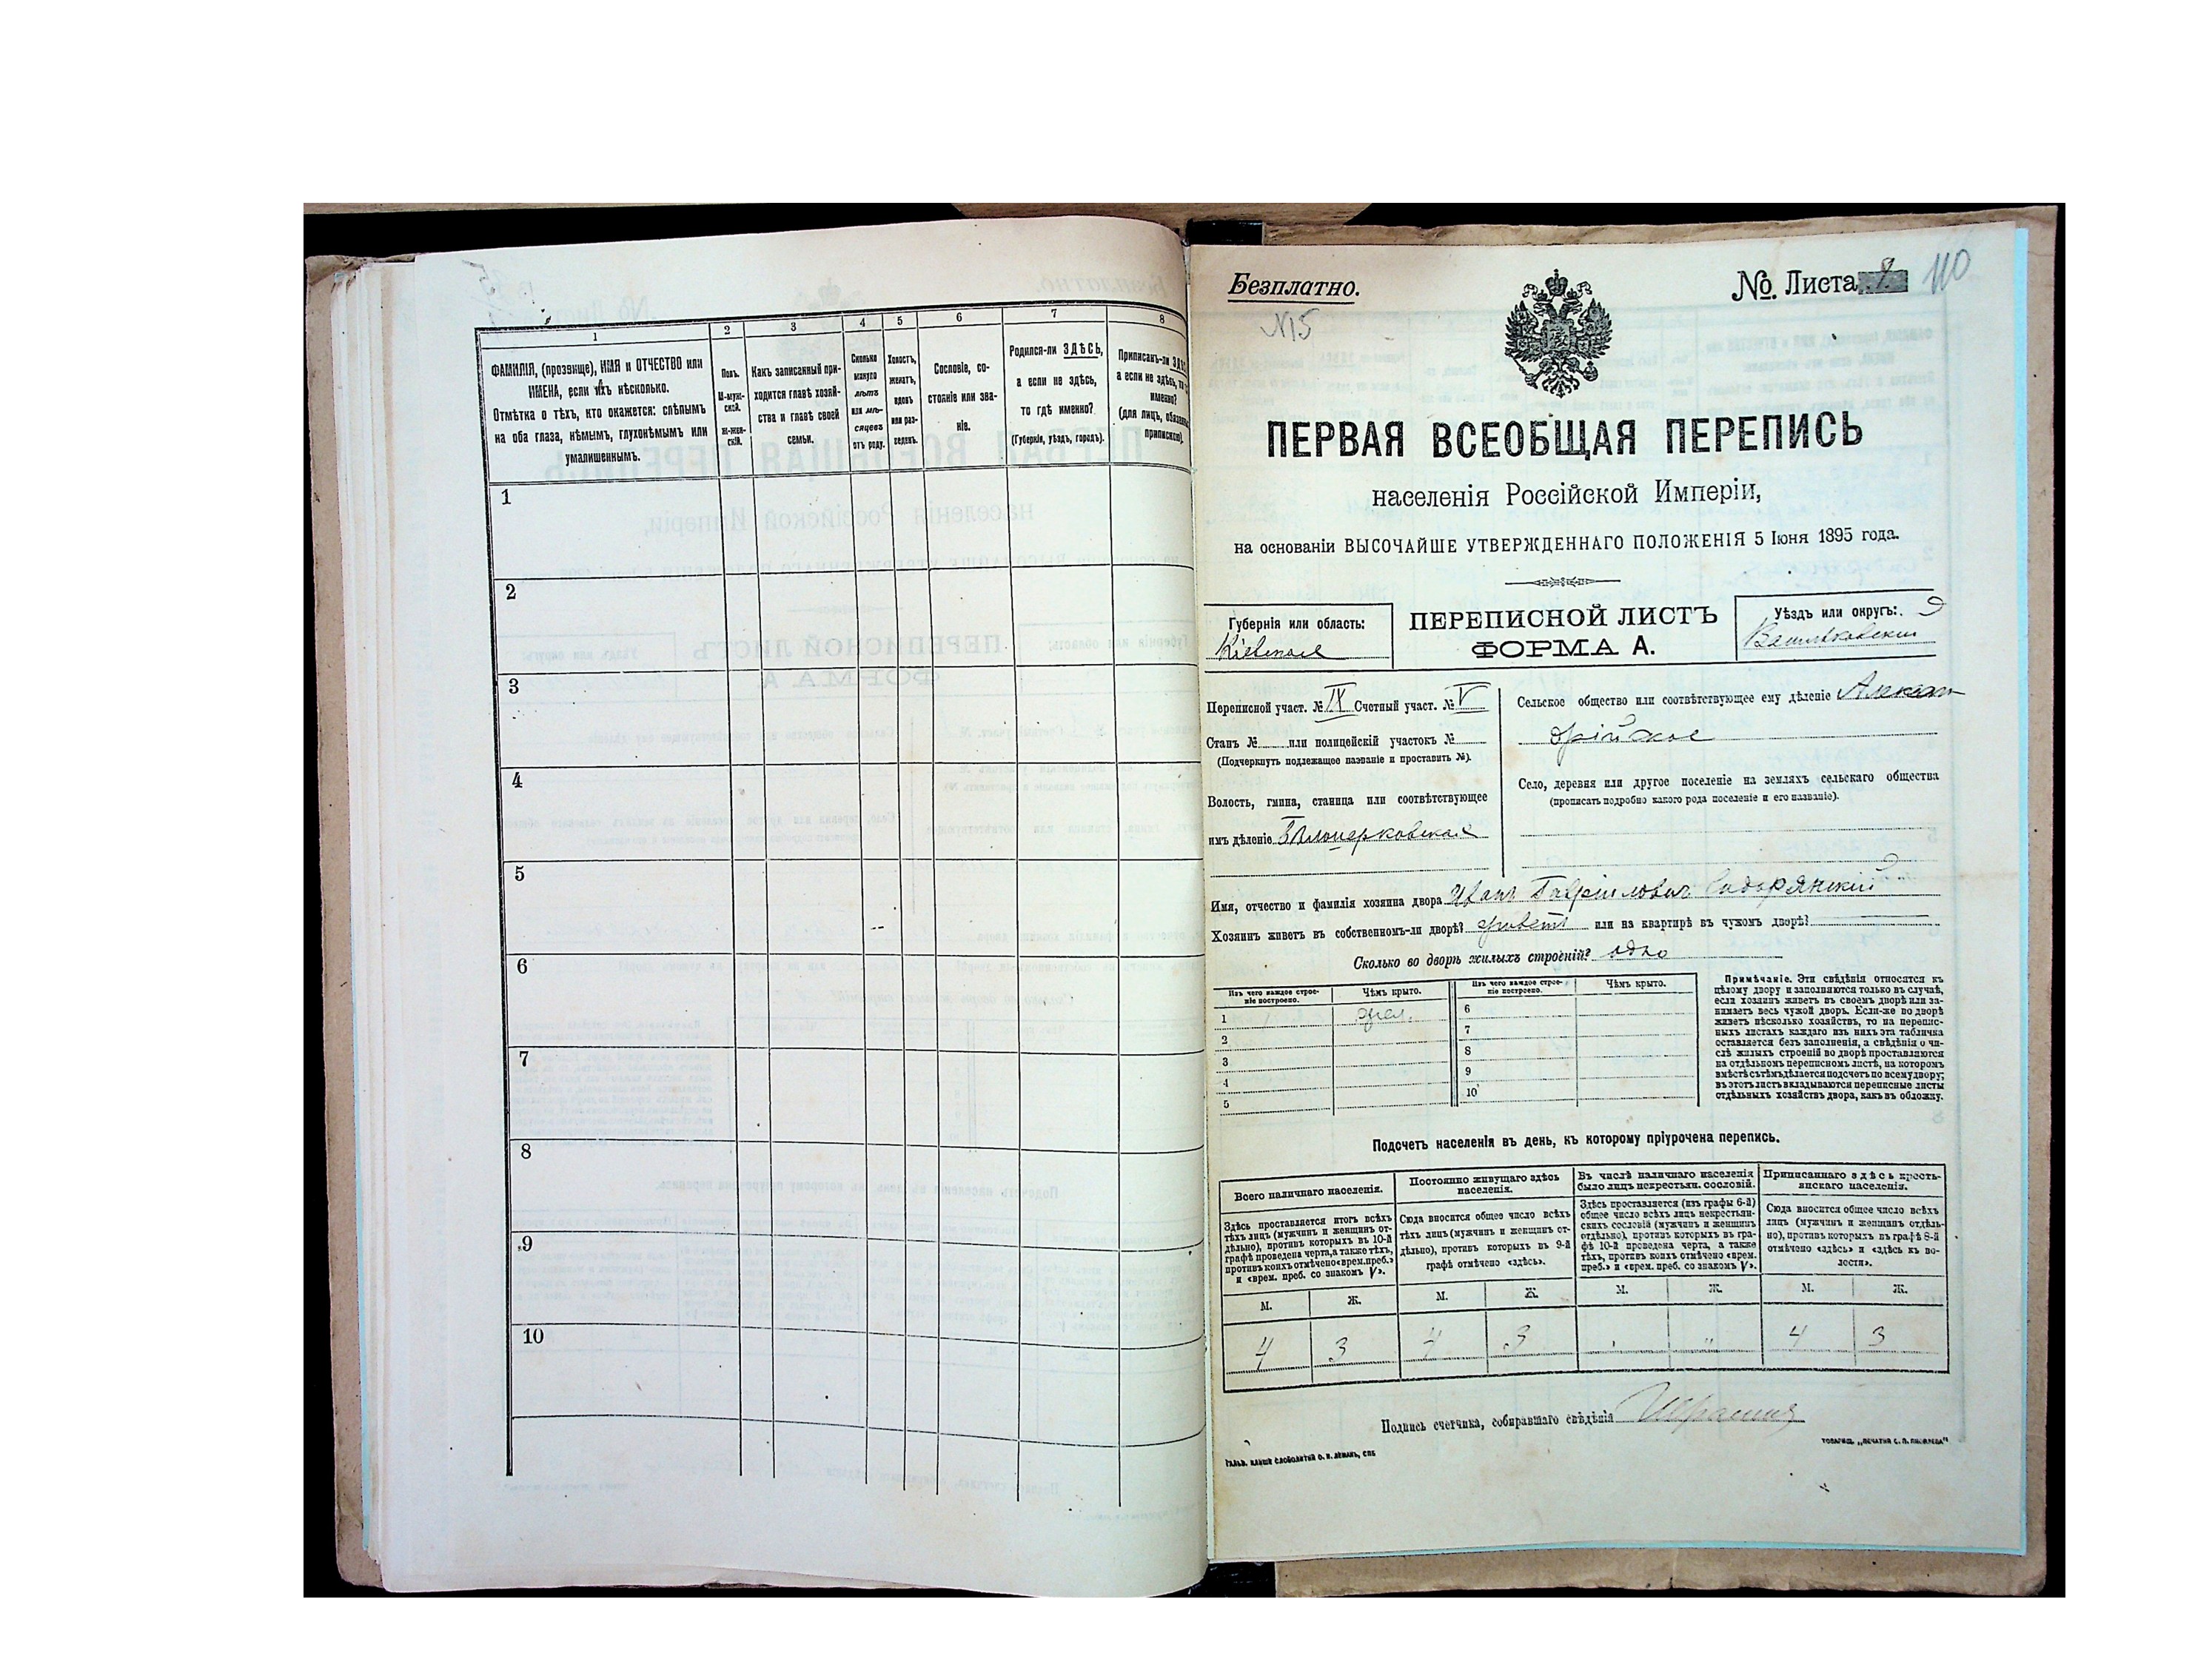 1 2 3 4 5 6 7 8
ФАМИЛІЯ, (прозвище), ИМЯ и ОТЧЕСТВО или
ИМЕНА, если ихъ нѣсколько.
Отмѣтка о тѣхъ, кто окажется: слѣпымъ
на оба глаза, нѣмымъ, глухонѣмымъ или
умалишеннымъ.
Полъ.
М-муж-
ской.
Ж-жен-
скій.
Какъ записанный при-
ходится главѣ хозяй-
ства и главѣ своей
семьи.
Сколько
минуло
лѣтъ
или мѣ-
сяцевъ
отъ роду.
Холостъ,
женатъ,
вдовъ
или раз-
веденъ.
Сословіе, со-
стояніе или зва-
ніе.
Родился-ли ЗДѢСЬ,
а если не здѣсь,
то гдѣ именно?
(Губернія, уѣздъ, городъ).
Приписанъ-ли
а если не здѣсь,
именно?
(для лицъ,
припискою).
1
2
3
4
5
6
7
8
9
10
Безплатно.
№ Листа 8 110
№5
ПЕРВАЯ ВСЕОБЩАЯ ПЕРЕПИСЬ
населенія Россійской Имперіи,
на основаніи ВЫСОЧАЙШЕ УТВЕРЖДЕННАГО ПОЛОЖЕНІЯ 5 Іюня 1895 года.
Губернія или область:
Кіевская
ПЕРЕПИСНОЙ ЛИСТЪ
ФОРМА А.
Уѣздъ или округъ:
Васильковскій
Переписной участ. № IX Счетный участ. № V
Станъ № или полицейскій участокъ №
(Подчеркнуть подлежащее названіе и проставить №).
Волость, гмина, станица или соотвѣтствующее
имъ дѣленіе Бѣлоцерковская
Сельское общество или соотвѣтствующее ему дѣленіе Алексан-
дрійское
Село, деревня или другое поселеніе на земляхъ сельскаго общества
(прописать подробно какого рода поселеніе и его названіе).
Имя, отчество и фамилія хозяина двора Иванъ Гавріиловичъ Сидорянскій
Хозяинъ живетъ въ собственномъ-ли дворѣ? живетъ или на квартирѣ въ чужомъ дворѣ?
Сколько во дворѣ жилыхъ строеній? одно
Изъ чего каждое строе-
ніе построено.
Чѣмъ крыто.
Изъ чего каждое строе-
ніе построено.
Чѣмъ крыто.
1 6
2 7
3 8
4 9
5 10
Примѣчаніе. Эти свѣдѣнія относятся къ
цѣлому двору и заполняются только въ случаѣ,
если хозяинъ живетъ въ своемъ дворѣ или за-
нимаетъ весь чужой дворъ. Если-же во дворѣ
живетъ нѣсколько хозяйствъ, то на перепис-
ныхъ листахъ каждаго изъ нихъ эта табличка
оставляется безъ заполненія, а свѣдѣнія о чи-
слѣ жилыхъ строеній во дворѣ проставляются
на отдѣльномъ переписномъ листѣ, на которомъ
вмѣстѣ съ тѣмъ дѣлается подсчетъ по всему двору;
въ этотъ листъ вкладываются переписные листы
отдѣльныхъ хозяйствъ двора, какъ въ обложку.
Подсчетъ населенія въ день, къ которому пріурочена перепись.
Всего наличнаго населенія.
Постоянно живущаго здѣсь
населенія.
Въ числѣ наличнаго населенія
было лицъ некрестьян. сословій.
Приписаннаго здѣсь кресть-
янскаго населенія.
Здѣсь проставляется итогъ всѣхъ
тѣхъ лицъ (мужчинъ и женщинъ от-
дѣльно), противъ которыхъ въ 10-й
графѣ проведена черта, а также тѣхъ,
противъ коихъ отмѣчено «врем. преб.»
и «врем. преб. со знакомъ V».
Сюда вносится общее число всѣхъ
тѣхъ лицъ (мужчинъ и женщинъ от-
дѣльно), противъ которыхъ въ 9-й
графѣ отмѣчено «здѣсь».
Здѣсь проставляется (изъ графы 6-й)
общее число всѣхъ лицъ некрестьян-
скихъ сословій (мужчинъ и женщинъ
отдѣльно), противъ которыхъ въ гра-
фѣ 10-й проведена черта, а также
тѣхъ, противъ коихъ отмѣчено «врем.
преб.» и «врем. преб. со знакомъ V».
Сюда вносится общее число всѣхъ
лицъ (мужчинъ и женщинъ отдѣль-
но), противъ которыхъ въ графѣ 8-й
отмѣчено «здѣсь» и «здѣсь въ во-
лости».
М. Ж. М. Ж. М. Ж. М. Ж.
4 3 4 3 " 4 3
Подпись счетчика, собиравшаго свѣдѣнія
ГАЛЬВ. КЛИШЕ СЛОВОЛИТНИ О. И. ЛЕМАНЪ, СПБ
ТОВАРИЩ. „ПЕЧАТНЯ С. П. ЯКОВЛЕВА"